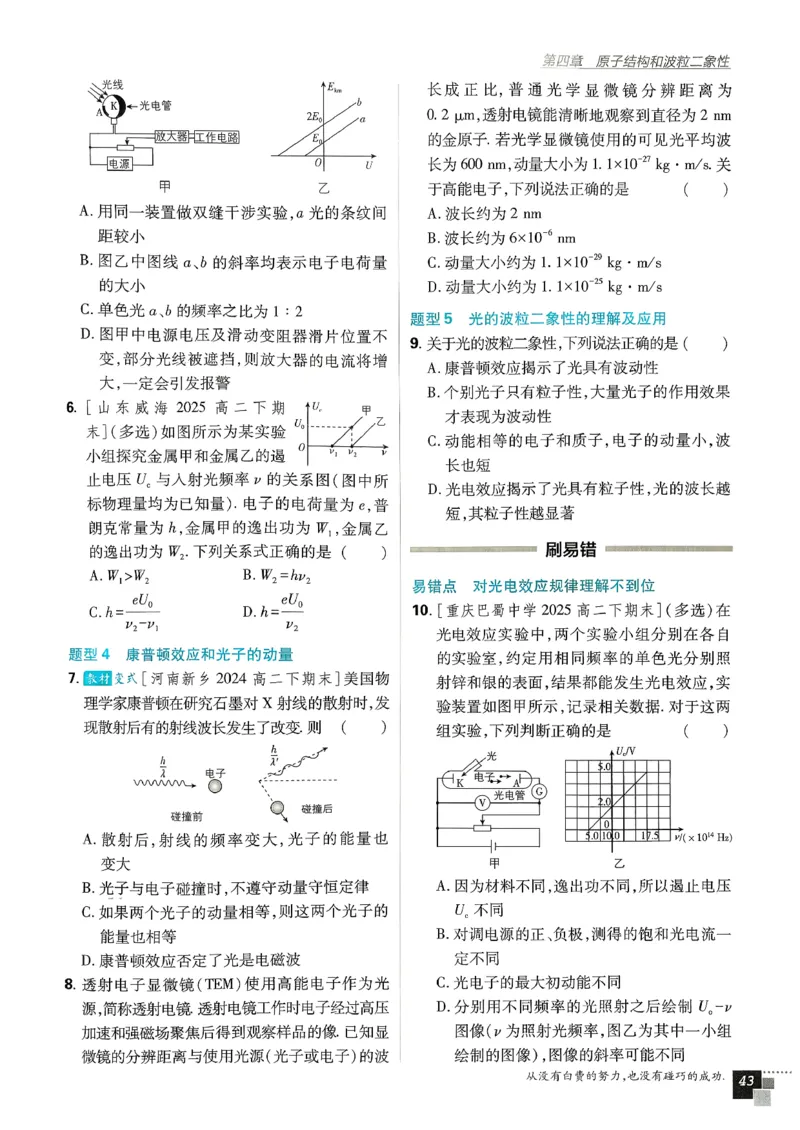 第四章 原子结构和波粒二象性
光线
K
A
光电管
放大器
工作电路
电源
甲
Ekm
b
2E₀
a
E₀
O
U
乙
A. 用同一装置做双缝干涉实验,a 光的条纹间
距较小
B. 图乙中图线 a、b 的斜率均表示电子电荷量
的大小
C. 单色光 a、b 的频率之比为 1∶2
D. 图甲中电源电压及滑动变阻器滑片位置不
变,部分光线被遮挡,则放大器的电流将增
大,一定会引发报警
6. [山东威海 2025 高二下期
末](多选)如图所示为某实验
小组探究金属甲和金属乙的遏
止电压 Uc 与入射光频率 ν 的关系图(图中所
标物理量均为已知量). 电子的电荷量为 e,普
朗克常量为 h,金属甲的逸出功为 W₁,金属乙
的逸出功为 W₂. 下列关系式正确的是 ( )
Uc
甲
U₀
乙
O
ν₁
ν₂
ν
A. W₁>W₂ B. W₂=hν₂
C. h=eU₀/(ν₂-ν₁) D. h=eU₀/ν₂
题型 4 康普顿效应和光子的动量
7. 教材变式 [河南新乡 2024 高二下期末]美国物
理学家康普顿在研究石墨对 X 射线的散射时,发
现散射后有的射线波长发生了改变. 则 ( )
h/λ
电子
碰撞前
h/λ′
碰撞后
A. 散射后,射线的频率变大,光子的能量也
变大
B. 光子与电子碰撞时,不遵守动量守恒定律
C. 如果两个光子的动量相等,则这两个光子的
能量也相等
D. 康普顿效应否定了光是电磁波
8. 透射电子显微镜(TEM)使用高能电子作为光
源,简称透射电镜. 透射电镜工作时电子经过高压
加速和强磁场聚焦后得到观察样品的像. 已知显
微镜的分辨距离与使用光源(光子或电子)的波
长成正比,普通光学显微镜分辨距离为
0.2 μm,透射电镜能清晰地观察到直径为 2 nm
的金原子. 若光学显微镜使用的可见光平均波
长为 600 nm,动量大小为 1.1×10⁻²⁷ kg·m/s. 关
于高能电子,下列说法正确的是 ( )
A. 波长约为 2 nm
B. 波长约为 6×10⁻⁶ nm
C. 动量大小约为 1.1×10⁻²⁹ kg·m/s
D. 动量大小约为 1.1×10⁻²⁵ kg·m/s
题型 5 光的波粒二象性的理解及应用
9. 关于光的波粒二象性,下列说法正确的是 ( )
A. 康普顿效应揭示了光具有波动性
B. 个别光子只有粒子性,大量光子的作用效果
才表现为波动性
C. 动能相等的电子和质子,电子的动量小,波
长也短
D. 光电效应揭示了光具有粒子性,光的波长越
短,其粒子性越显著
刷易错
易错点 对光电效应规律理解不到位
10. [重庆巴蜀中学 2025 高二下期末](多选)在
光电效应实验中,两个实验小组分别在各自
的实验室,约定用相同频率的单色光分别照
射锌和银的表面,结果都能发生光电效应,实
验装置如图甲所示,记录相关数据. 对于这两
组实验,下列判断正确的是 ( )
光
K
电子
A
光电管
G
V
甲
Uc/V
5.0
2.0
0
5.0 10.0 17.5
ν/(×10¹⁴ Hz)
乙
A. 因为材料不同,逸出功不同,所以遏止电压
Uc 不同
B. 对调电源的正、负极,测得的饱和光电流一
定不同
C. 光电子的最大初动能不同
D. 分别用不同频率的光照射之后绘制 Uc-ν
图像(ν 为照射光频率,图乙为其中一小组
绘制的图像),图像的斜率可能不同
从没有白费的努力,也没有碰巧的成功.
43